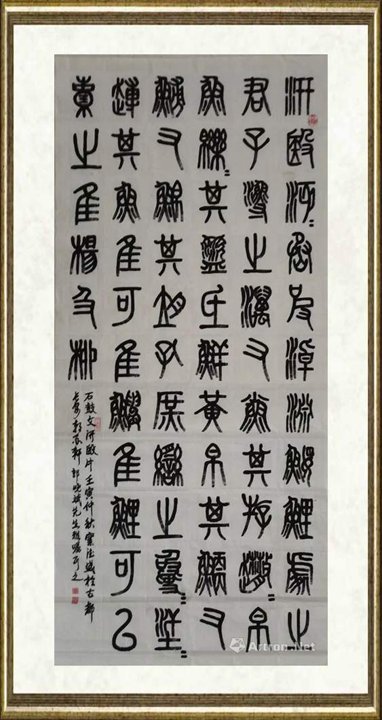 汧殹沔=丞彼淖淵鰋鯉處之
君子漁之澫又魚其斿趩=帛
魚皪=其盜氐鮮黃帛其鯾又
鰟又鮊其孔庶臠之
其魚隹可隹鱮隹鯉可以
橐之隹楊及柳
石鼓文汧殹片壬寅仲秋於古都
先生雅囑
Artron.Net